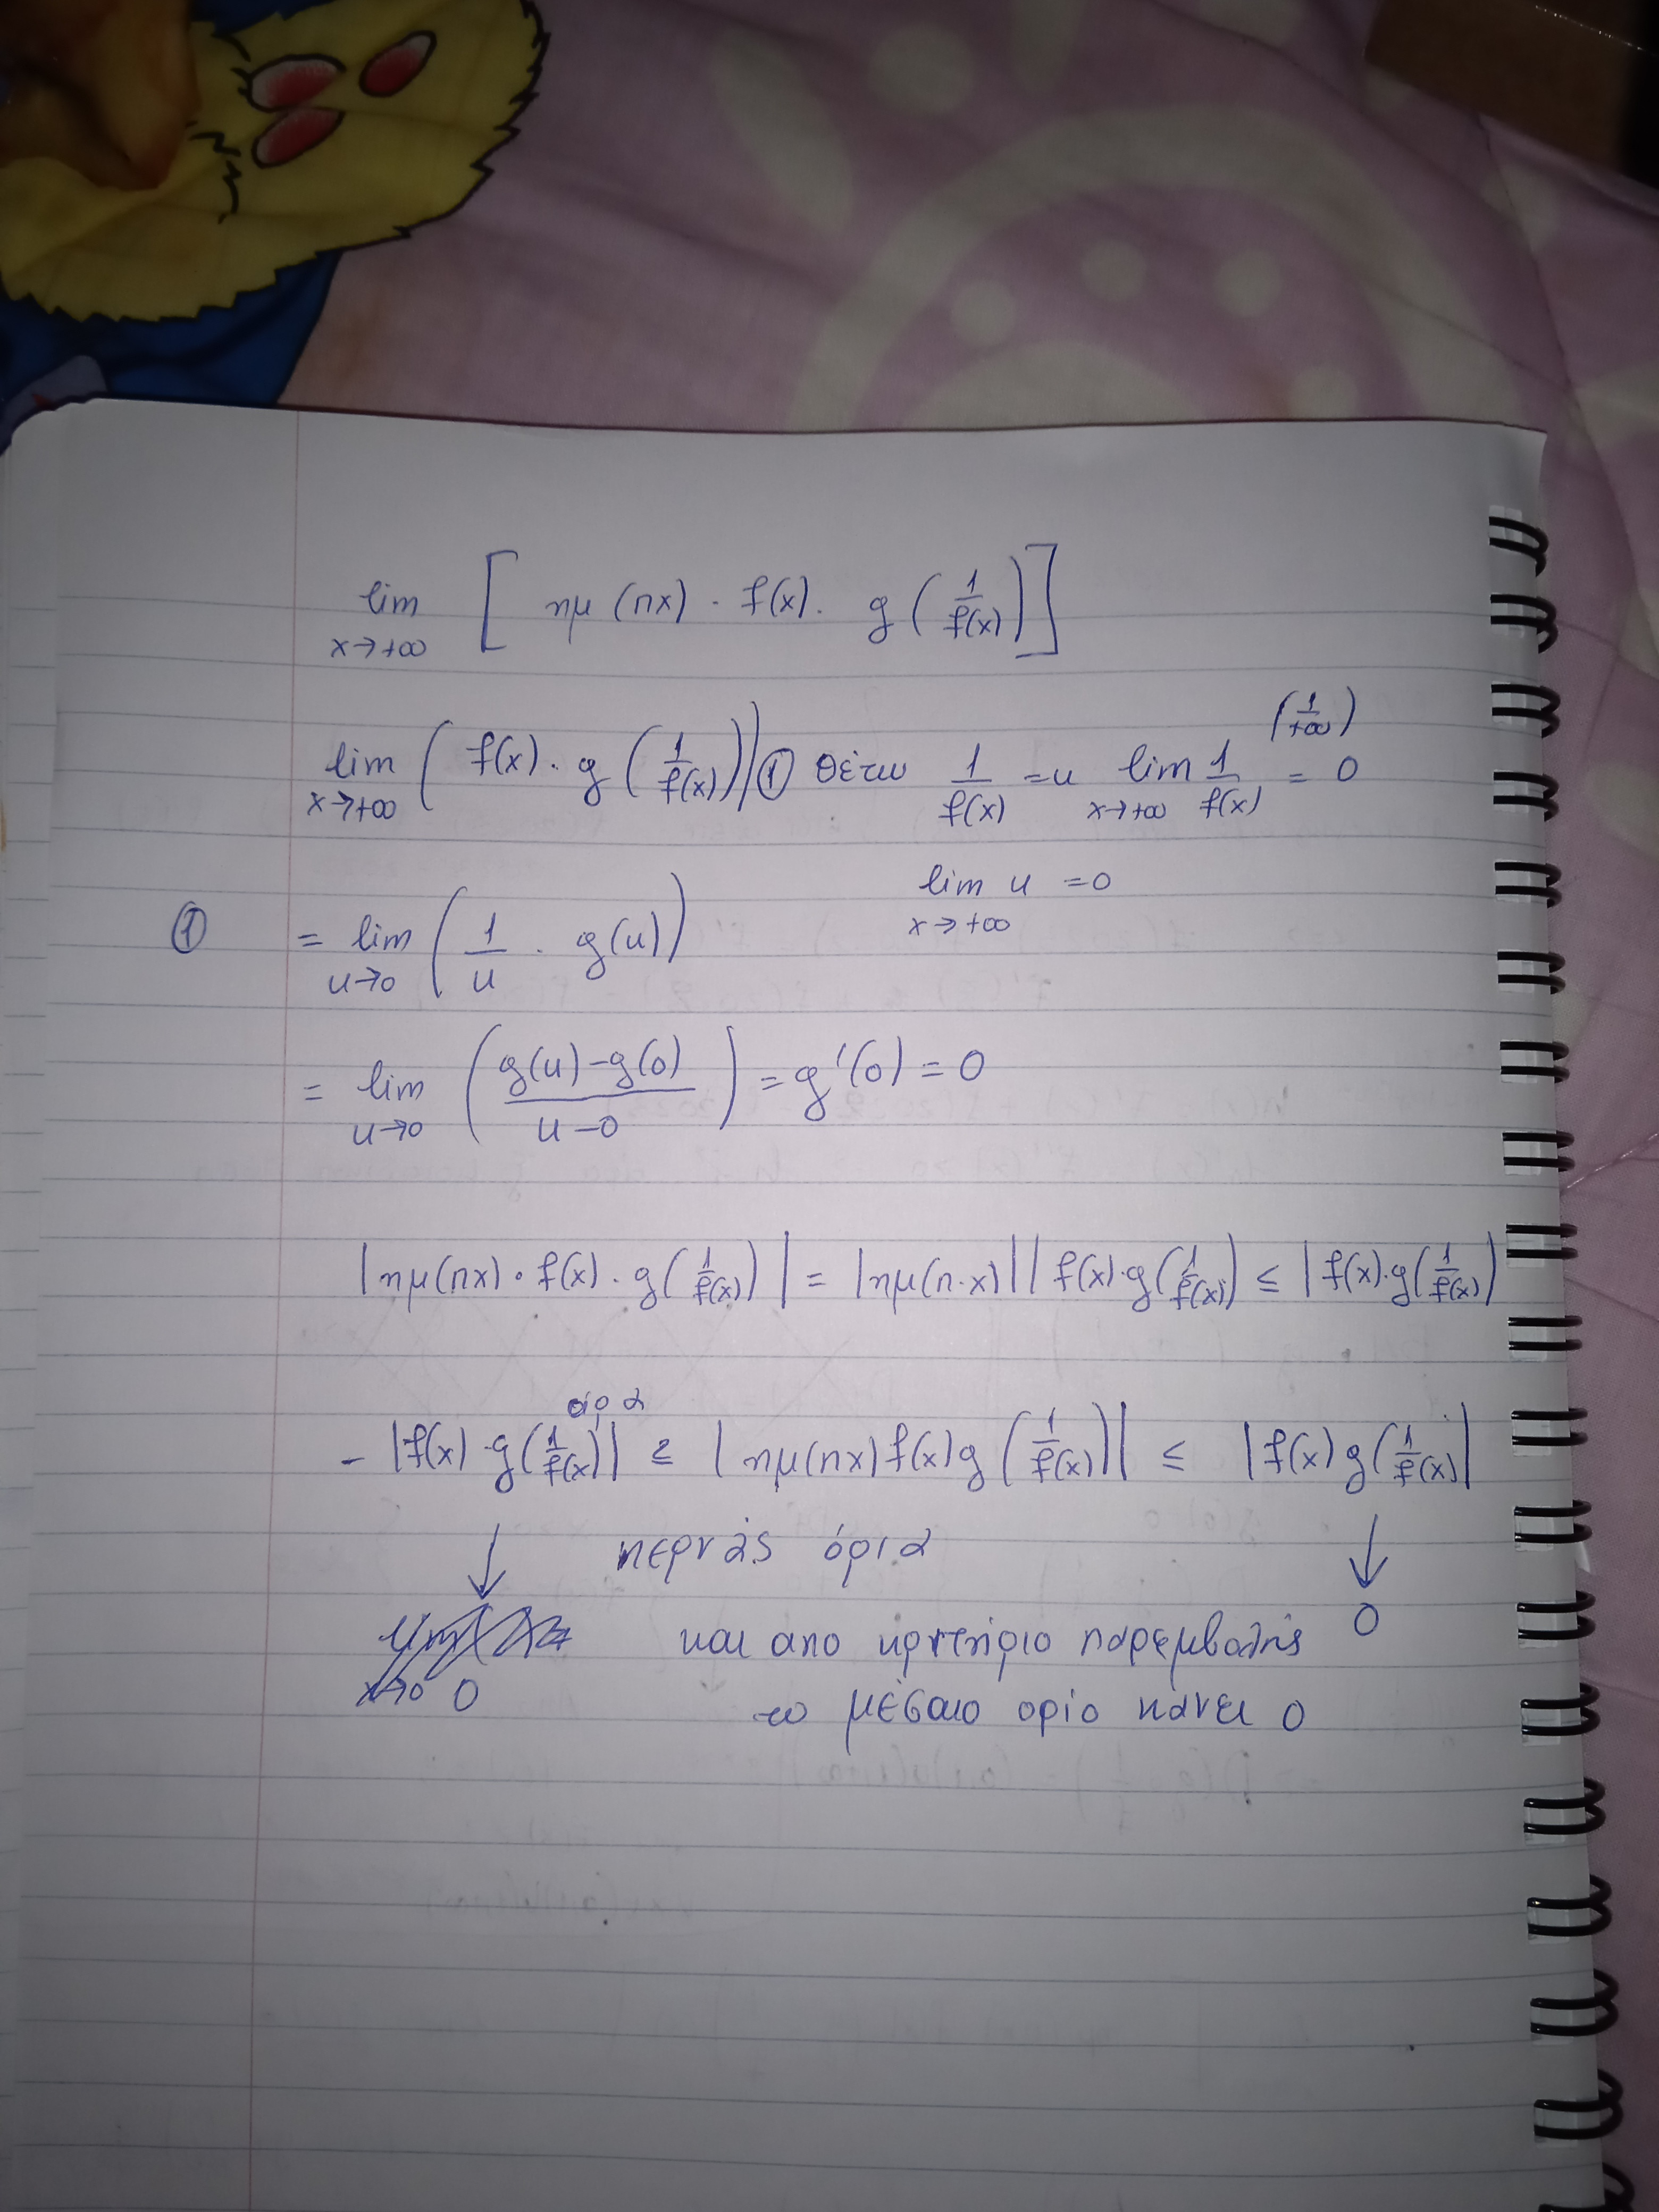 lim x→+∞ [ ημ (πx) · f(x) · g ( 1/f(x) ) ]
lim x→+∞ ( f(x) · g ( 1/f(x) ) ) ① θέτω 1/f(x) = u lim x→+∞ 1/f(x) = 0 (1/+∞)
lim x→+∞ u = 0
① = lim u→0 ( 1/u · g(u) )
= lim u→0 ( g(u) - g(0) / u - 0 ) = g'(0) = 0
| ημ(πx) · f(x) · g( 1/f(x) ) | = | ημ(π·x) | | f(x)·g( 1/f(x) ) ≤ | f(x)·g( 1/f(x) )
άρα
- | f(x) · g( 1/f(x) ) | ≤ | ημ(πx) f(x) g ( 1/f(x) ) | ≤ | f(x) g( 1/f(x) ) |
περνάς όρια
0 και απο κριτήριο παρεμβολής 0
το μέσαιο οριο κάνει 0